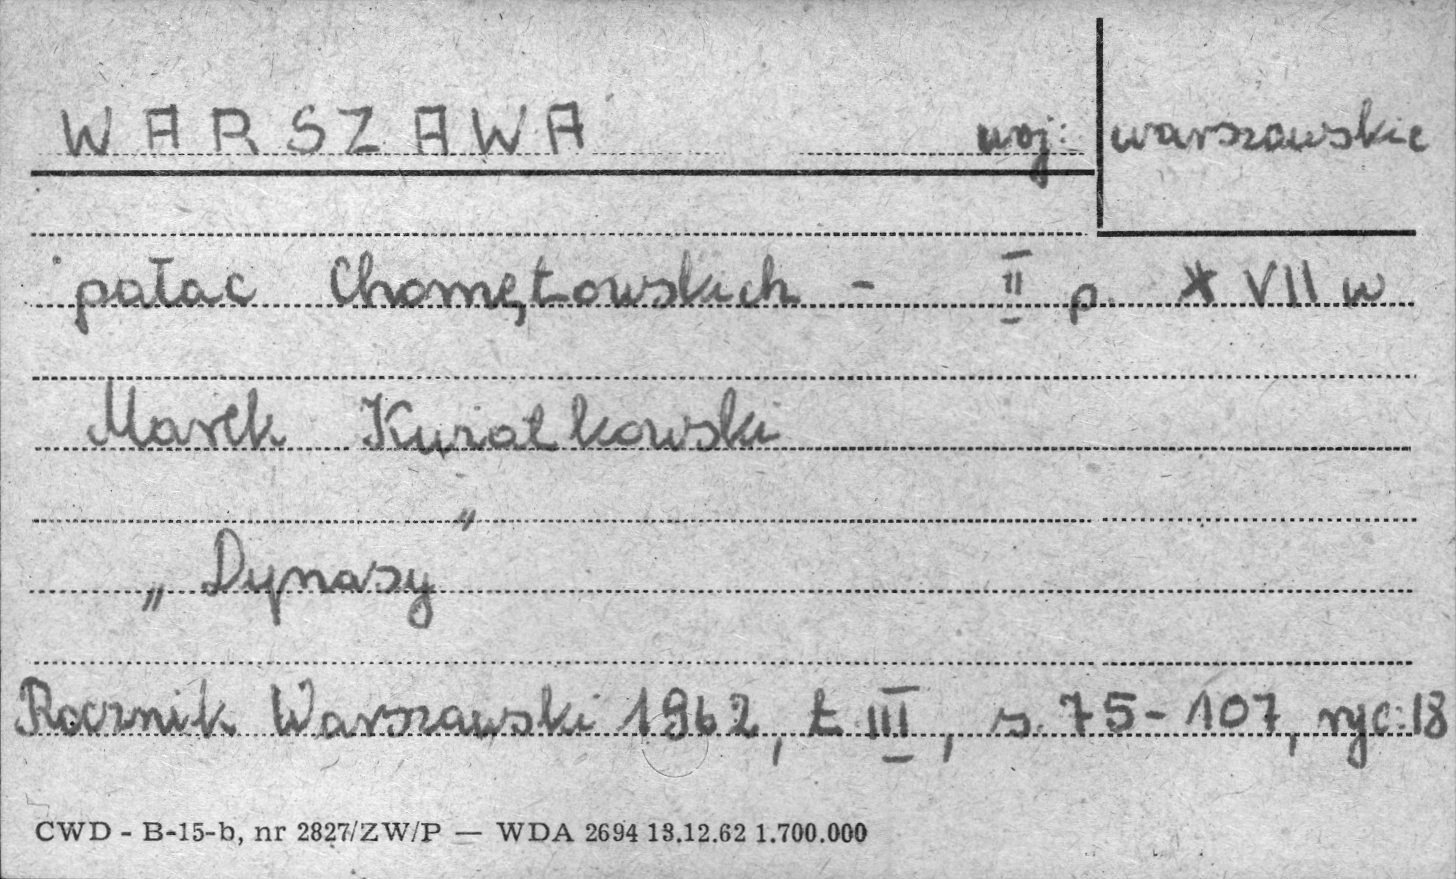 WARSZAWA woj: warszawskie
pałac Chomętowskich - II p. XVII w
Marek Kwiatkowski
„Dynasy"
Rocznik Warszawski 1962, t. III, s. 75-107, ryc. 18
CWD - B-15-b, nr 2827/ZW/P — WDA 2694 13.12.62 1.700.000